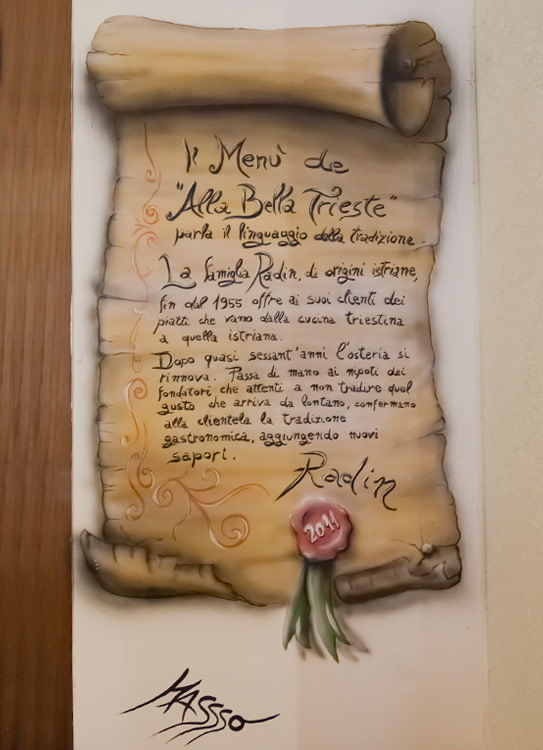 Il Menù de
"Alla Bella Trieste"
parla il linguaggio della tradizione.
La famiglia Radin, di origini istriane,
fin dal 1955 offre ai suoi clienti dei
piatti che vano dalla cucina triestina
a quella istriana.
Dopo quasi sessant'anni l'osteria si
rinnova. Passa di mano ai nipoti dei
fondatori che attenti a non tradire quel
gusto che arriva da lontano, confermano
alla clientela la tradizione
gastronomica, aggiungendo nuovi
sapori.
Radin
2011
MASSSO